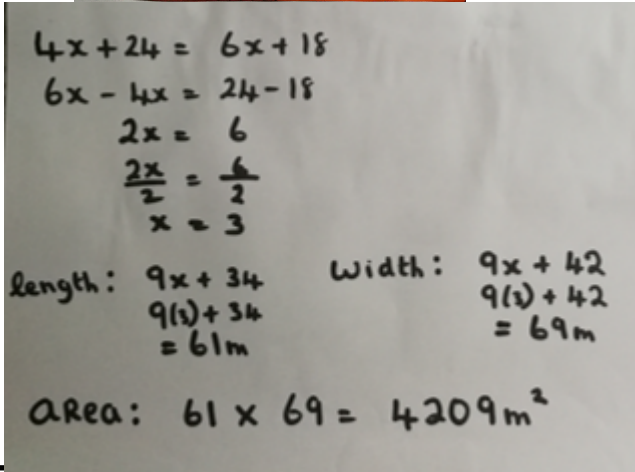 4x + 24 = 6x + 18
6x - 4x = 24 - 18
2x = 6
2x/2 = 6/2
x = 3
length: 9x + 34
9(3) + 34
= 61m
Width: 9x + 42
9(3) + 42
= 69m
area: 61 x 69 = 4209m²